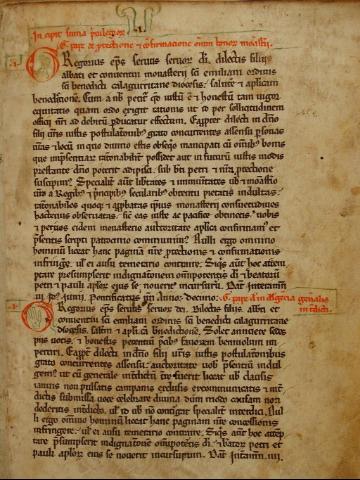 In cipit suma priuilegior
G. pape de ptectione & cofirmacione omniu bonor monstii.
Gregorius eps seruus seruor di. dilectis filijs
abbati et conuentui monasterij sci emiliani ordinis
sci benedicti calaguritane diocesis. salute & aplicam
benedictione. Cum a nob petit qd iustu e & honestu tam uigor
equitatis quam ordo exigit rationis ut id per sollicitudinem
officij nri ad debitu pducatur effectum. Eapter dilecti in dno
filij uris iustis postulationib grato concurrentes assensu psonas
uras & locu in quo diuino estis obsequio mancipati cu omib bonis
que impsentiar rationabilit possidet aut in futuru iustis modis
prestante dno poterit adipisci. sub bti petri & nra ptectione
suscipim. Specialit aut libtates & immunitates
a Regib & principib secularib obtentu pietatis indultas.
rationabiles quoq & approbatas ipsius monasterij consuetudines
hactenus obseruatas. sic eas iuste ac pacifice obtinetis. uobis
& per uos eidem monasterio auctoritate aplica confirmam &
psentis scripti patrocinio communim. Nulli ergo omnino
hominum liceat hanc paginam nre ptectionis & confirmationis
infringe. ul ei ausu temerario contraire. Siquis aut hoc attem
ptare presumpserit indignationem omipotentis di & beatoru
petri & pauli aplor eius se nouerit incursuru. Dat
Pontificatus nri Anno. Decimo.
G. pape
Gregorius eps seruus seruor di. Dilectis filijs. abbati et
conuentui sci emiliani ordinis sci benedicti calaguritane
diocesis. salem & aplica bndictione. Solet annuere sedes
pia uotis. & honestis petentiu pcib fauorem beniuolum im
pertiri. Eapter dilecti in dno filij uris iustis postulationibus
grato concurrentes assensu. auctoritate uob psentiu indul
gem. ut cu generale interdictu tre fuerit liceat uob clausis
ianuis non pulsatis campanis exclusis excomunicatis & int
dictis submissa uoce celebrare diuina dum modo causam non
dederitis interdicto. ul id uob no contingat specialit interdici. Nul
li ergo omino hominu liceat hanc paginam nre concessionis
infringere. ul ei ausu temerario contraire. Siquis aut hoc attep
tare psumpserit indignatione omipotetis di. & beator petri et
pauli aplor eius se nouerit incursurum. Dat